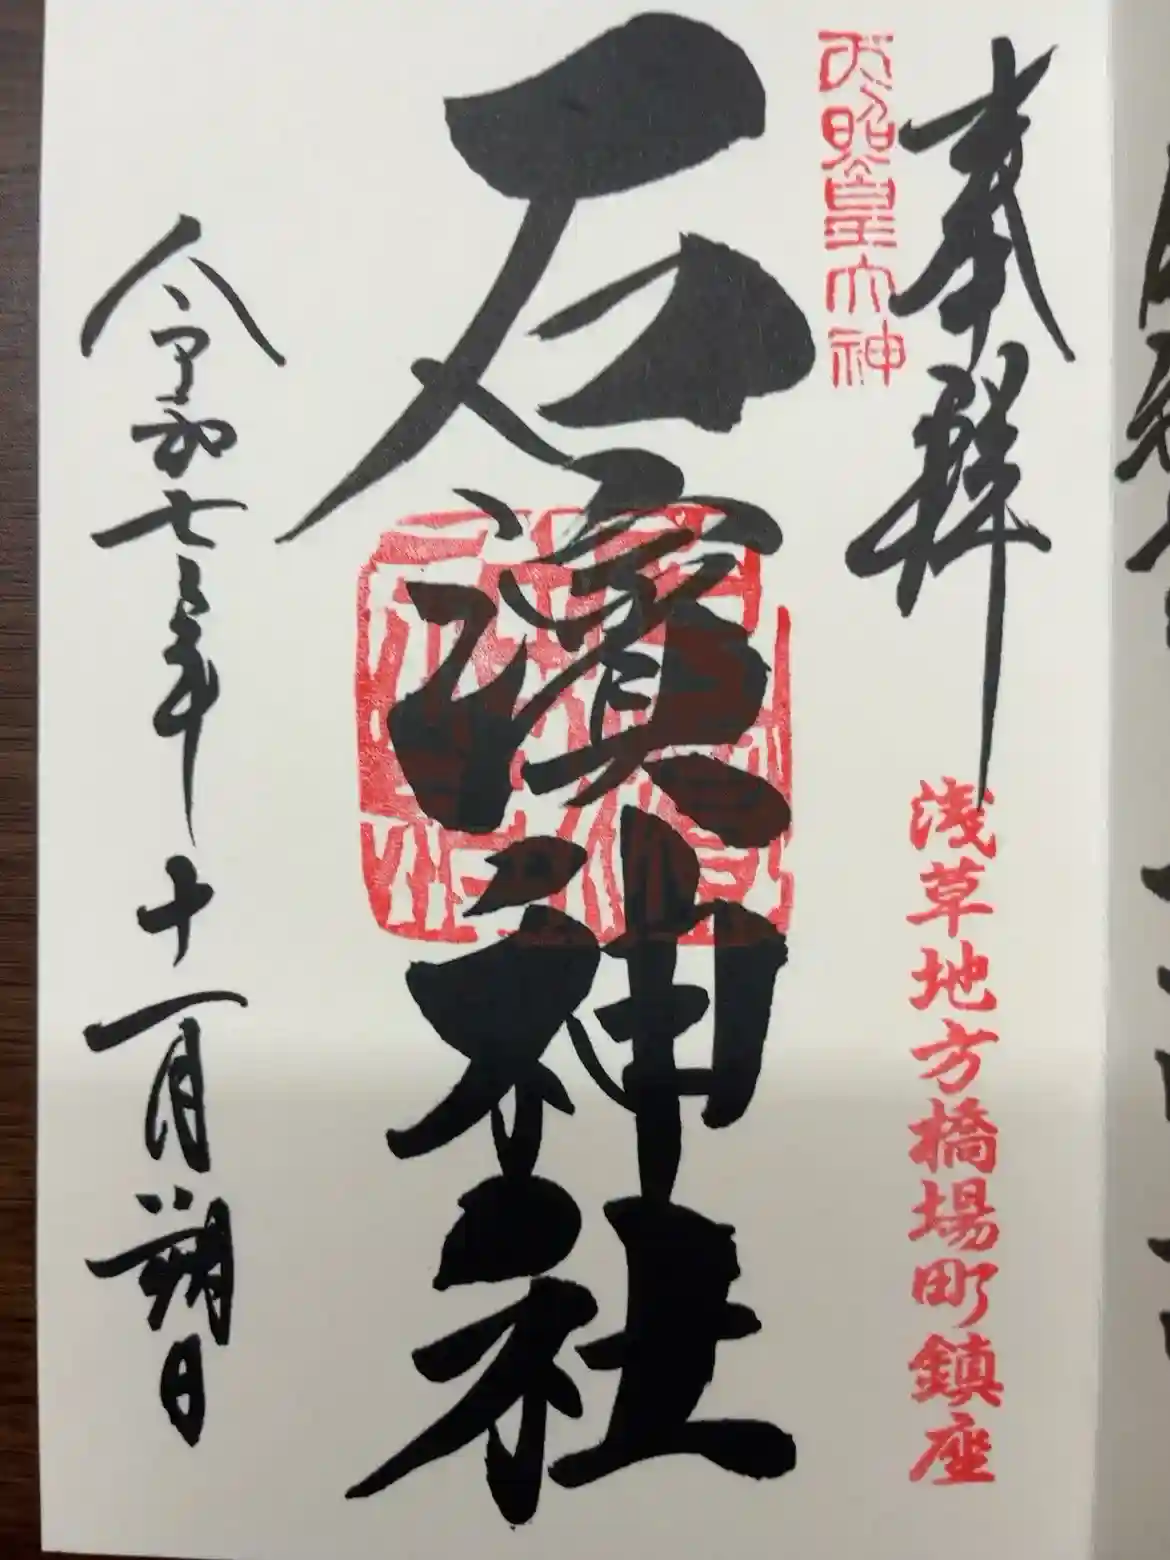 奉拝
浅草地方橋場町鎮座
天照皇大神
石濱神社
令和七年十一月朔日